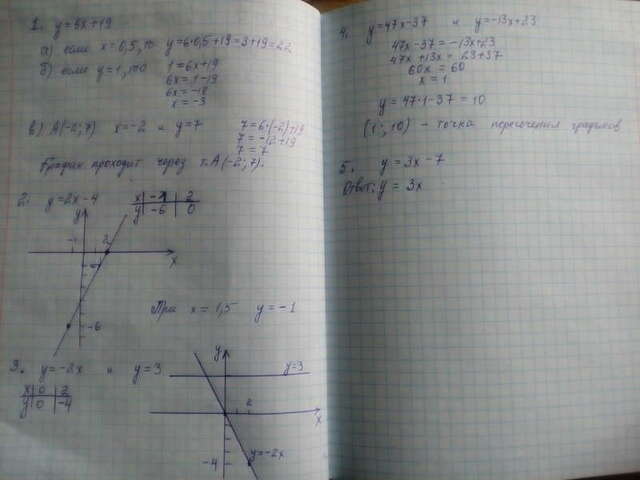 1. y=6x+19
а) если x=0,5, то y=6·0,5+19=3+19=22
б) если y=1, то 1=6x+19
6x=1-19
6x=-18
x=-3
в) A(-2;7) x=-2 и y=7 7=6·(-2)+19
7=-12+19
7=7
График проходит через т. A(-2;7).
2. y=2x-4
x -1 2
y -6 0
y
-1 2
x
-6
При x=1,5 y=-1
3. y=-2x и y=3
x 0 2
y 0 -4
y
y=3
2
x
-4 y=-2x
4. y=47x-37 и y=-13x+23
47x-37=-13x+23
47x+13x=23+37
60x=60
x=1
y=47·1-37=10
(1;10) - точка пересечения графиков
5. y=3x-7
Ответ: y=3x